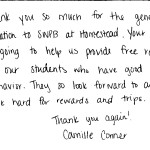 nk you so much for the gene
ation to SWPB at Homestead. Your
going to help us provide free re
our students who have good
havior. They so look forward to a
k hard for rewards and trips.
Thank you again!
Camille Conner